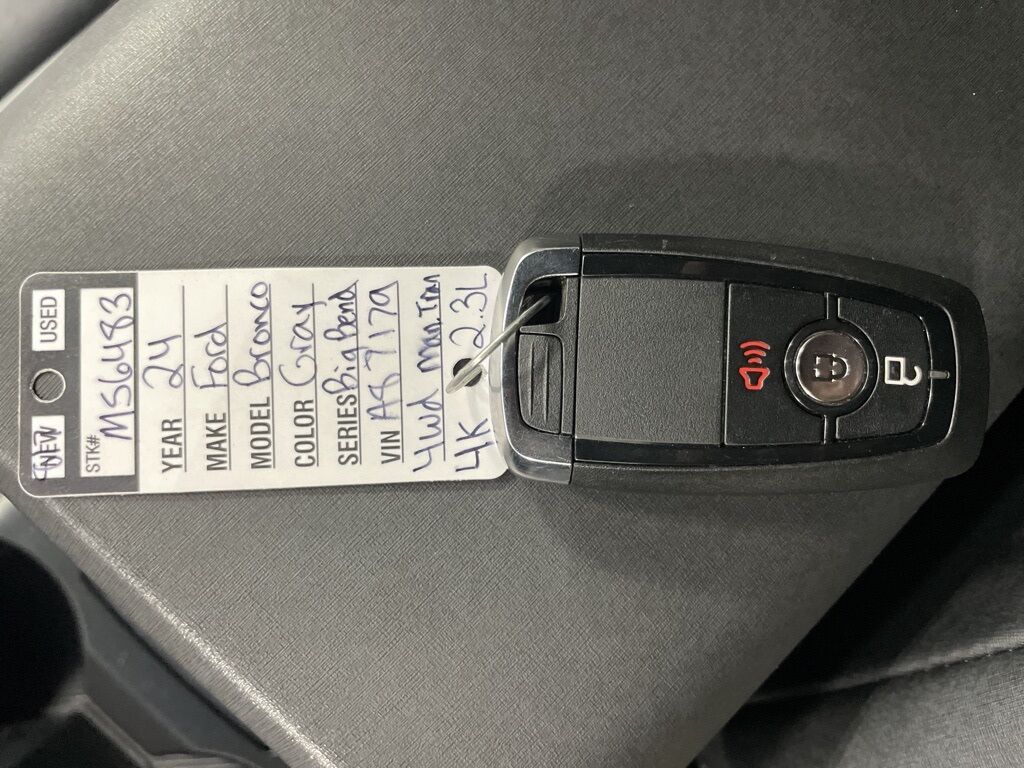 NEW USED
STK# MS6483
YEAR 24
MAKE Ford
MODEL Bronco
COLOR Gray
SERIES Big Bend
VIN A87179
4wd Man. Tran
4K 2.3L